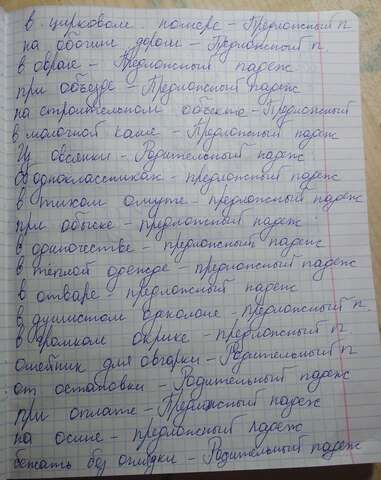 в цирковом номере – Предложный п
на обочине дороги – Предложный п.
в овраге – Предложный падеж
при объезде – Предложный падеж
на строительном объекте – Предложный
в молочной каше – Предложный падеж
у овсянки – Родительный падеж
об одноклассниках – предложный падеж
в тихом омуте – предложный падеж
при обыске – предложный падеж
в одиночестве – предложный падеж
в тёплой одежде – предложный падеж
в отваре – предложный падеж
в душистом одеколоне – предложный п.
в громком окрике – предложный п.
ошейник для овчарки – Родительный п
от остановки – Родительный падеж
при оплате – Предложный падеж
на осине – предложный падеж
бежать без оглядки – Родительный падеж